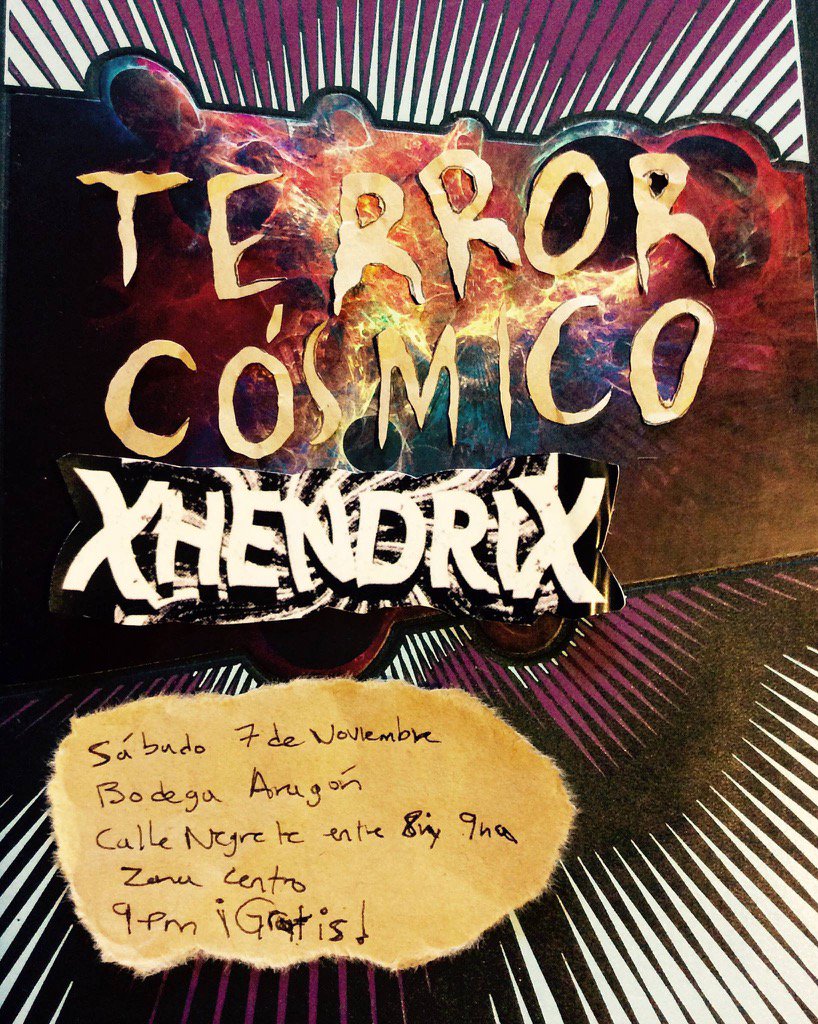 TERROR
CÓSMICO
XHENDRIX
Sábado 7 de Noviembre
Bodega Aragón
Calle Negrete entre 8va y 9na
Zona Centro
9pm ¡Gratis!